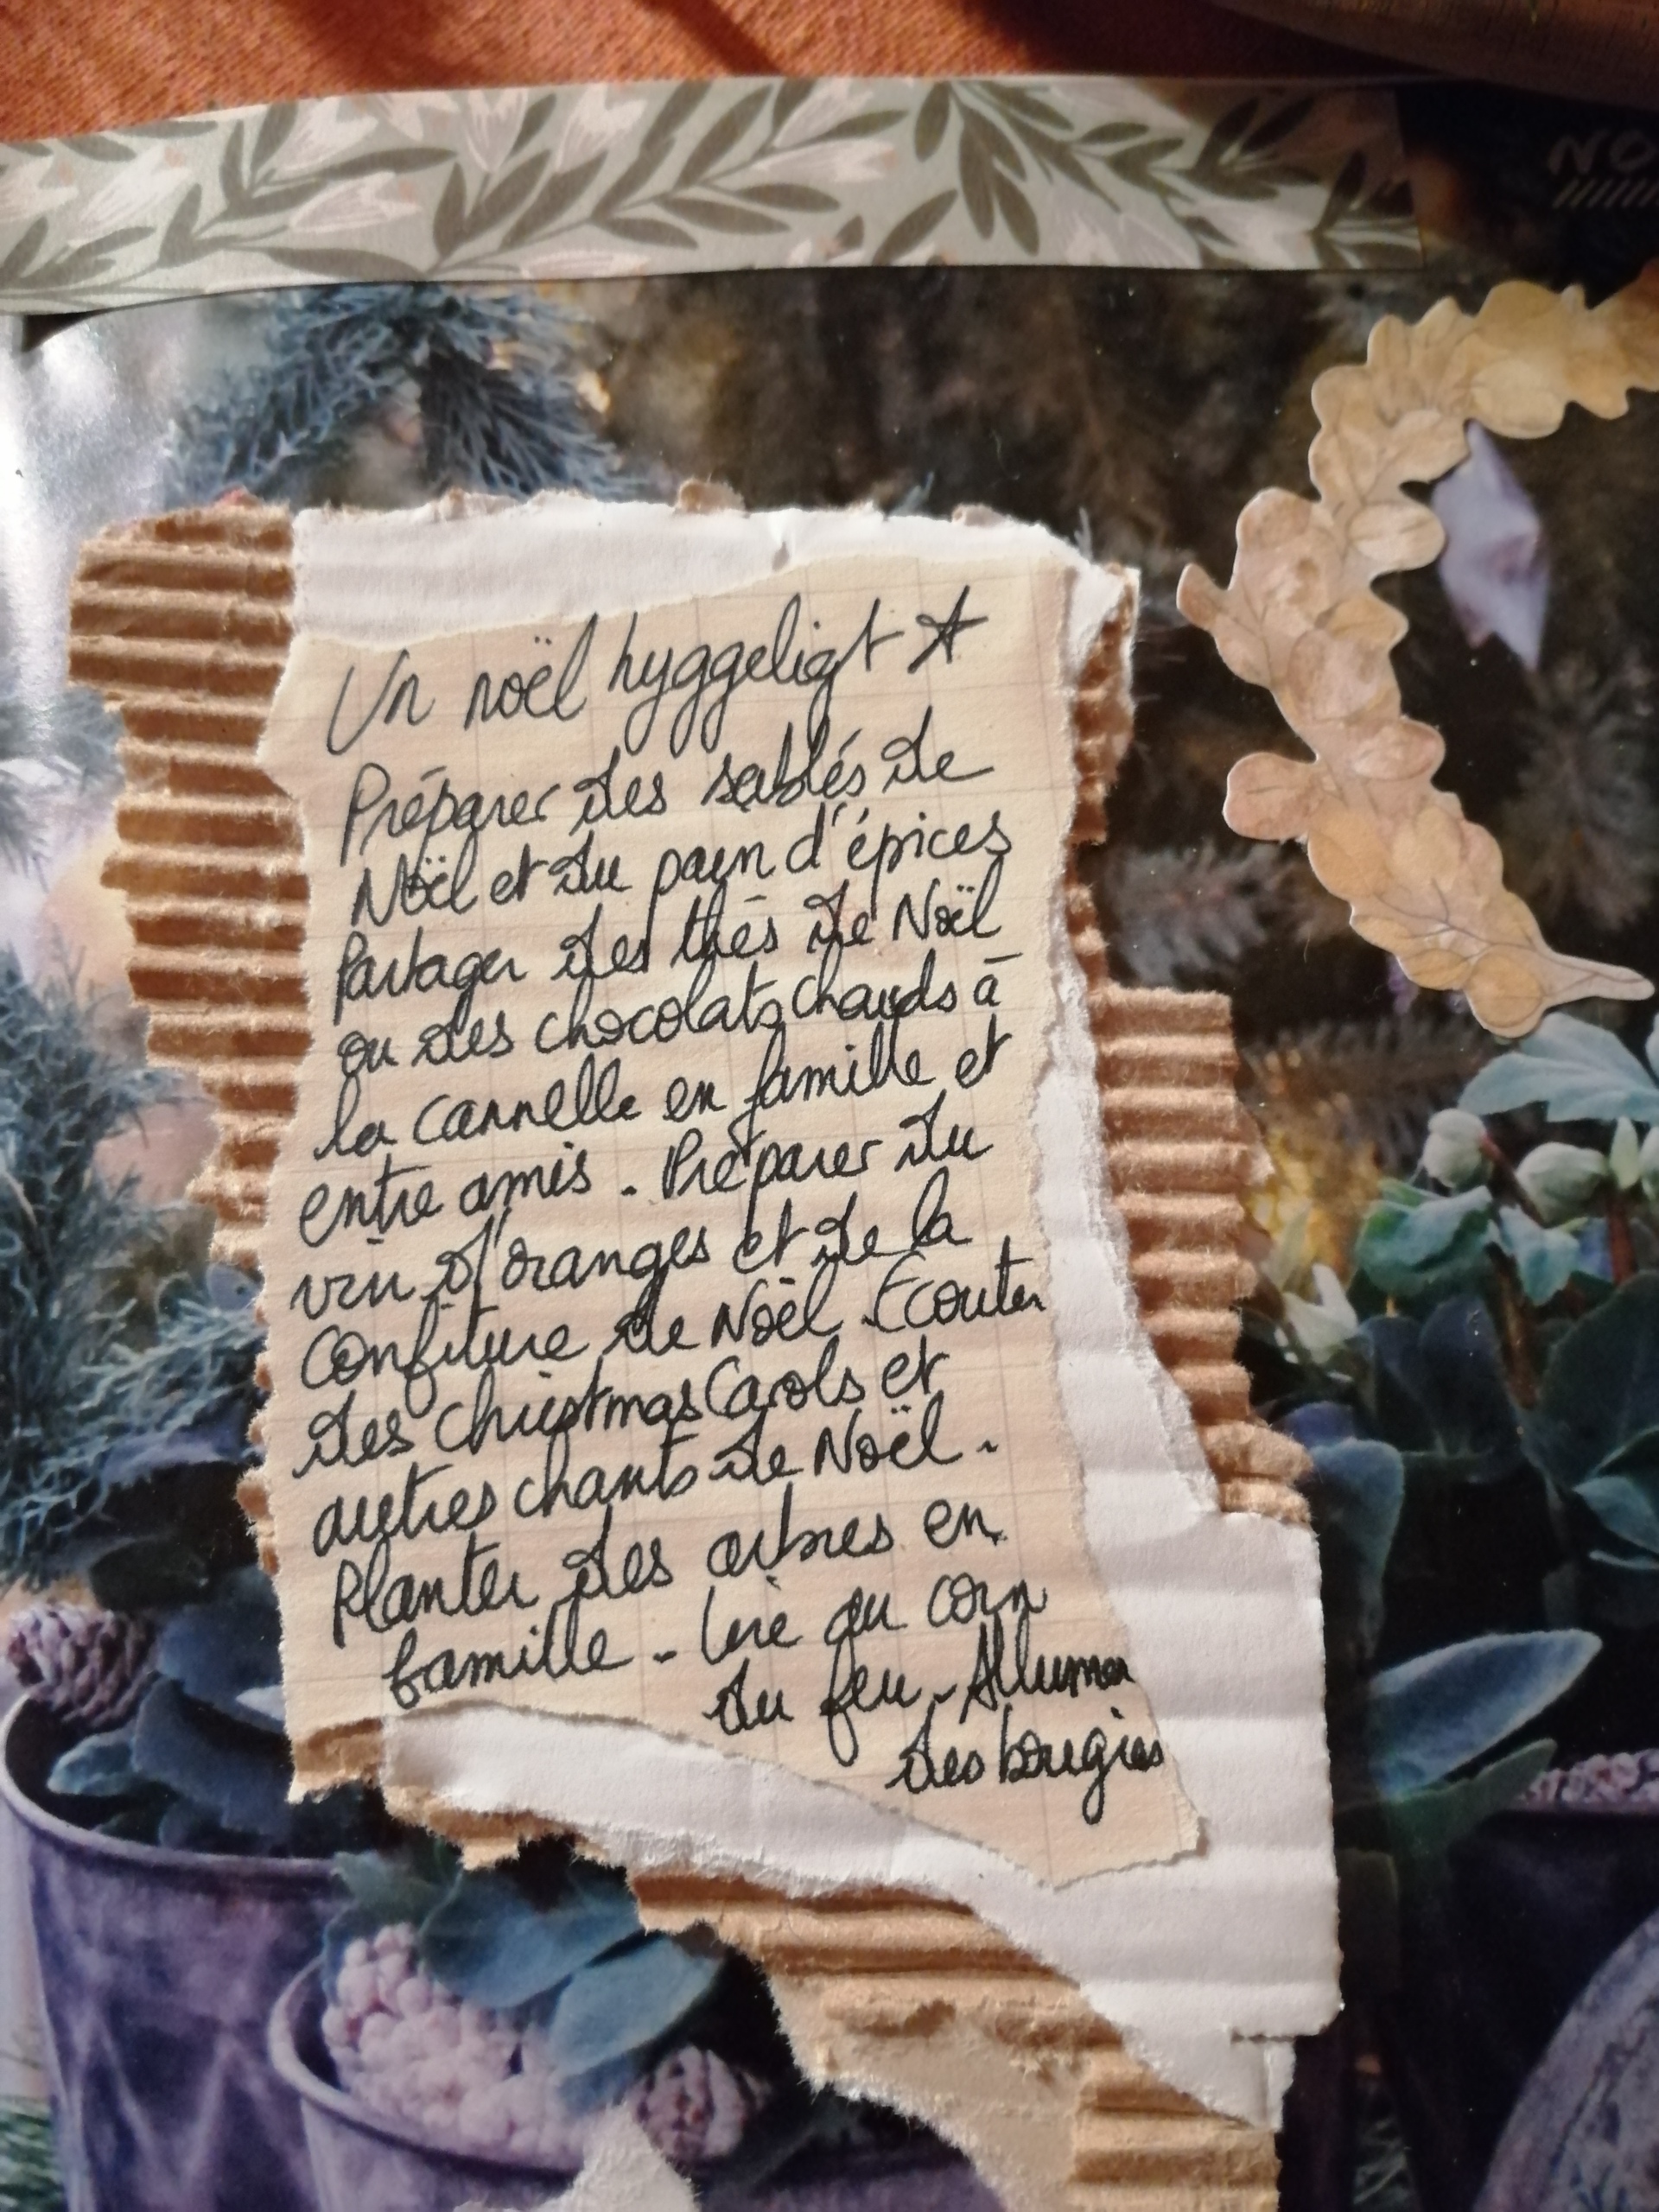 NO
Un noël hyggeligt ☆
Préparer des sablés de
Noël et du pain d'épices
Partager des thés de Noël
ou des chocolats chauds à
la cannelle en famille et
entre amis. Préparer du
vin d'oranges et de la
confiture de Noël. Ecouter
des Christmas Carols et
autres chants de Noël.
Planter des arbres en
famille - Lire au coin
du feu - Allumer
des bougies